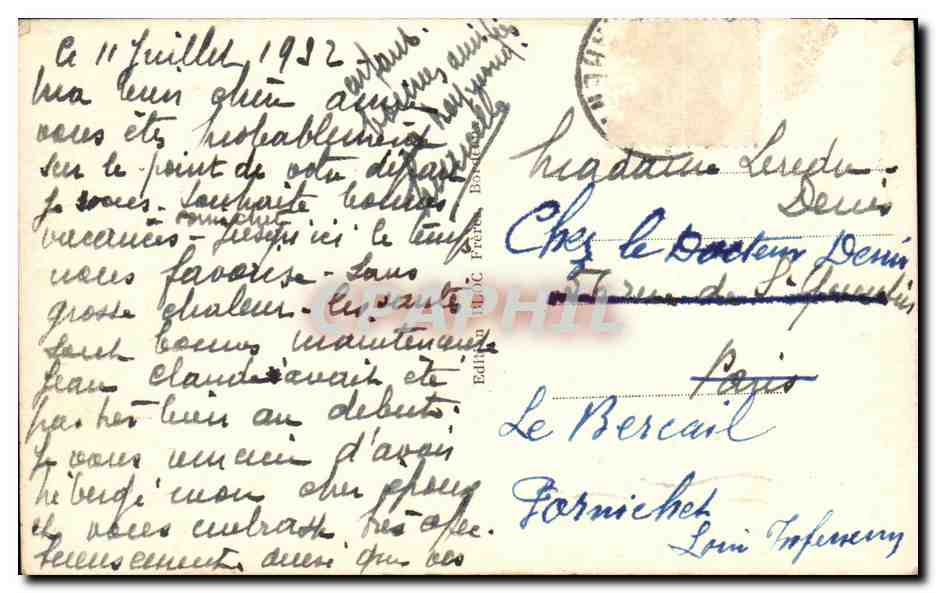 Ce 11 Juillet 1932
Ma bien chère amie
vous êtes probablement
sur le point de votre départ
Je vous souhaite bonnes
vacances - Jusqu'ici le temps
à Pornichet
nous favorise - Sans
grosse chaleur - les santés
sont bonnes maintenant
Jean Claude n'avait été
pas très bien au début.
Je vous remercie d'avoir
hébergé mon cher époux
et vous embrasse très affec
tueusement ainsi que vos
enfants.
bonnes amitiés
de Raymond
Edition BLOC Frères, Bordeaux
Madame Leredu-
Denis
Chez le Docteur Denis
57 rue de
Paris
Le Bercail
Pornichet
Loire Inférieure
CPAPHIL